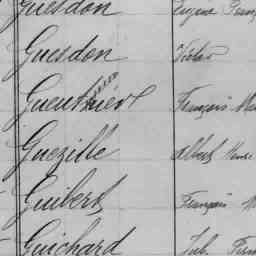 Guesdon Eugène
Guesdon Victor
Gueuthier François
Guezille Albert
Guibert François
Guichard Jul.